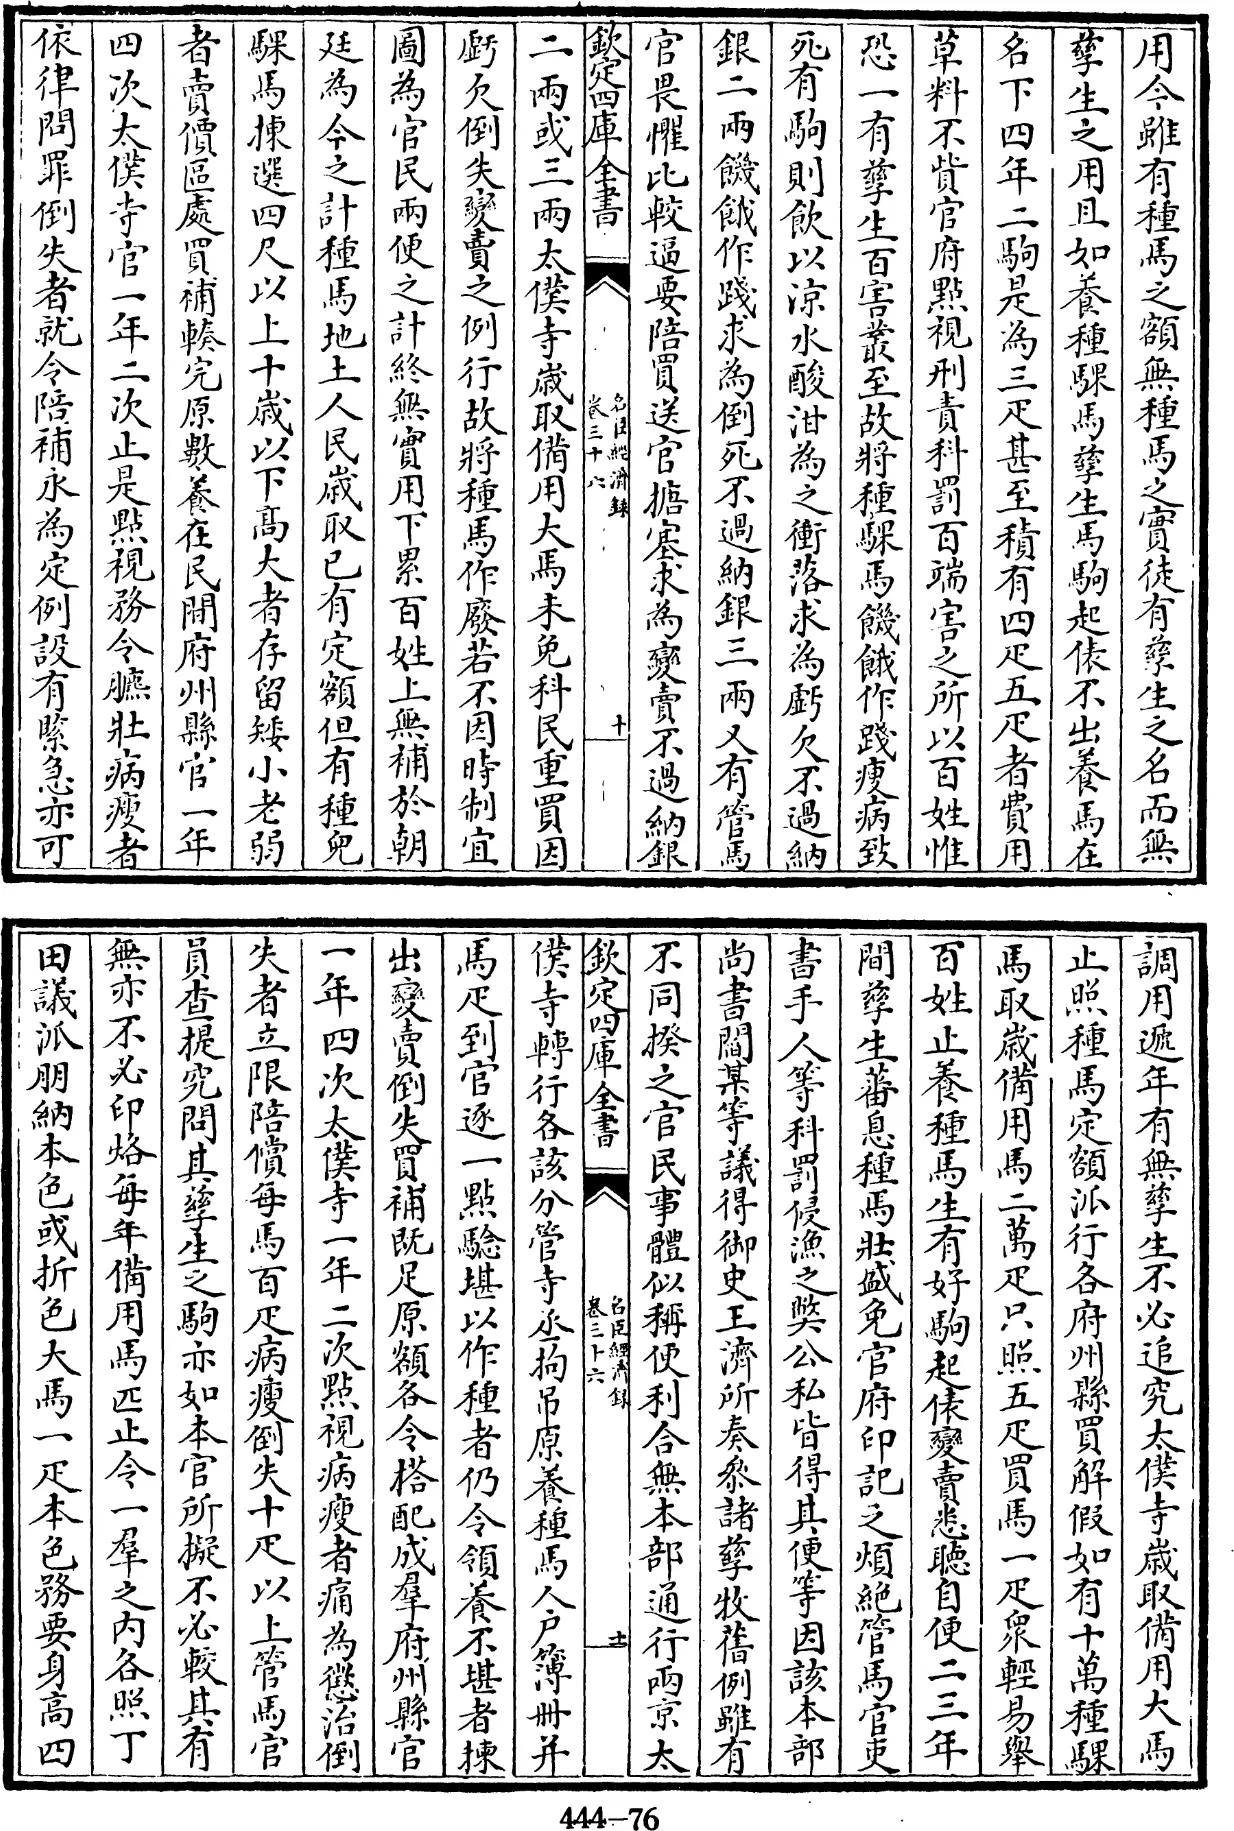 用今雖有種馬之額無種馬之實徒有孳生之名而無
孳生之用且如養種騍馬孳生馬駒起俵不出養馬在
名下四年二駒是為三疋甚至積有四疋五疋者費用
草料不貲官府點視刑責科罰百端害之所以百姓惟
恐一有孳生百害叢至故將種騍馬饑餓作踐瘦病致
死有駒則飲以凉水酸泔為之衝落求為虧欠不過納
銀二兩饑餓作踐求為倒死不過納銀三兩又有管馬
官畏懼比較逼要陪買送官搪塞求為變賣不過納銀
欽定四庫全書
名臣經濟録
卷三十六
十
二兩或三兩太僕寺歲取備用大馬未免科民重買因
虧欠倒失變賣之例行故將種馬作廢若不因時制宜
圖為官民兩便之計終無實用下累百姓上無補於朝
廷為今之計種馬地土人民歲取已有定額但有種兒
騍馬揀選四尺以上十歲以下高大者存留矮小老弱
者賣價區處買補輳完原數養在民間府州縣官一年
四次太僕寺官一年二次止是點視務令臕壯病瘦者
依律問罪倒失者就令陪補永為定例設有緊急亦可
調用遞年有無孳生不必追究太僕寺歲取備用大馬
止照種馬定額派行各府州縣買解假如有十萬種騍
馬取歲備用馬二萬疋只照五疋買馬一疋衆輕易舉
百姓止養種馬生有好駒起俵變賣悉聽自便二三年
間孳生蕃息種馬壯盛免官府印記之煩絶管馬官吏
書手人等科罰侵漁之獘公私皆得其便等因該本部
尚書閻某等議得御史王濟所奏叅諸孳牧舊例雖有
不同揆之官民事體似稱便利合無本部通行兩京太
欽定四庫全書
名臣經濟録
卷三十六
十一
僕寺轉行各該分管寺丞拘吊原養種馬人户簿冊并
馬疋到官逐一點驗堪以作種者仍令領養不堪者揀
出變賣倒失買補既足原額各令搭配成羣府州縣官
一年四次太僕寺一年二次點視病瘦者痛為懲治倒
失者立限陪償每馬百疋病瘦倒失十疋以上管馬官
員查提究問其孳生之駒亦如本官所擬不必較其有
無亦不必印烙每年備用馬匹止令一羣之内各照丁
田議派朋納本色或折色大馬一疋本色務要身高四
444-76